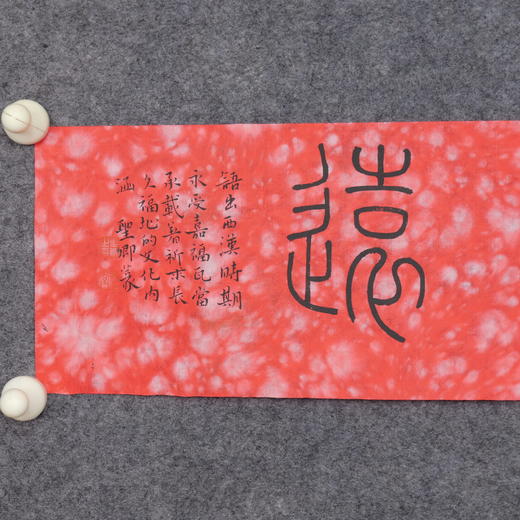 遠
語出西漢時期
永受嘉福瓦當
承載著祈求長
久福祉的文化內
涵 聖卿篆